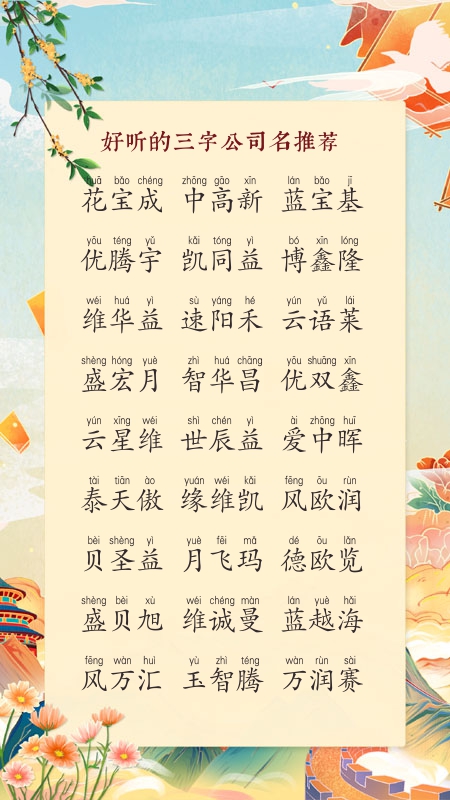 好听的三字公司名推荐
huā bǎo chéng zhōng gāo xīn lán bǎo jī
花宝成 中高新 蓝宝基
yōu téng yǔ kǎi tóng yì bó xīn lóng
优腾宇 凯同益 博鑫隆
wéi huá yì sù yáng hé yún yǔ lái
维华益 速阳禾 云语莱
shèng hóng yuè zhì huá chāng yōu shuāng xīn
盛宏月 智华昌 优双鑫
yún xīng wéi shì chén yì ài zhōng huī
云星维 世辰益 爱中晖
tài tiān ào yuán wéi kǎi fēng ōu rùn
泰天傲 缘维凯 风欧润
bèi shèng yì yuè fēi mǎ dé ōu lǎn
贝圣益 月飞玛 德欧览
shèng bèi xù wéi chéng màn lán yuè hǎi
盛贝旭 维诚曼 蓝越海
fēng wàn huì yù zhì téng wàn rùn sài
风万汇 玉智腾 万润赛